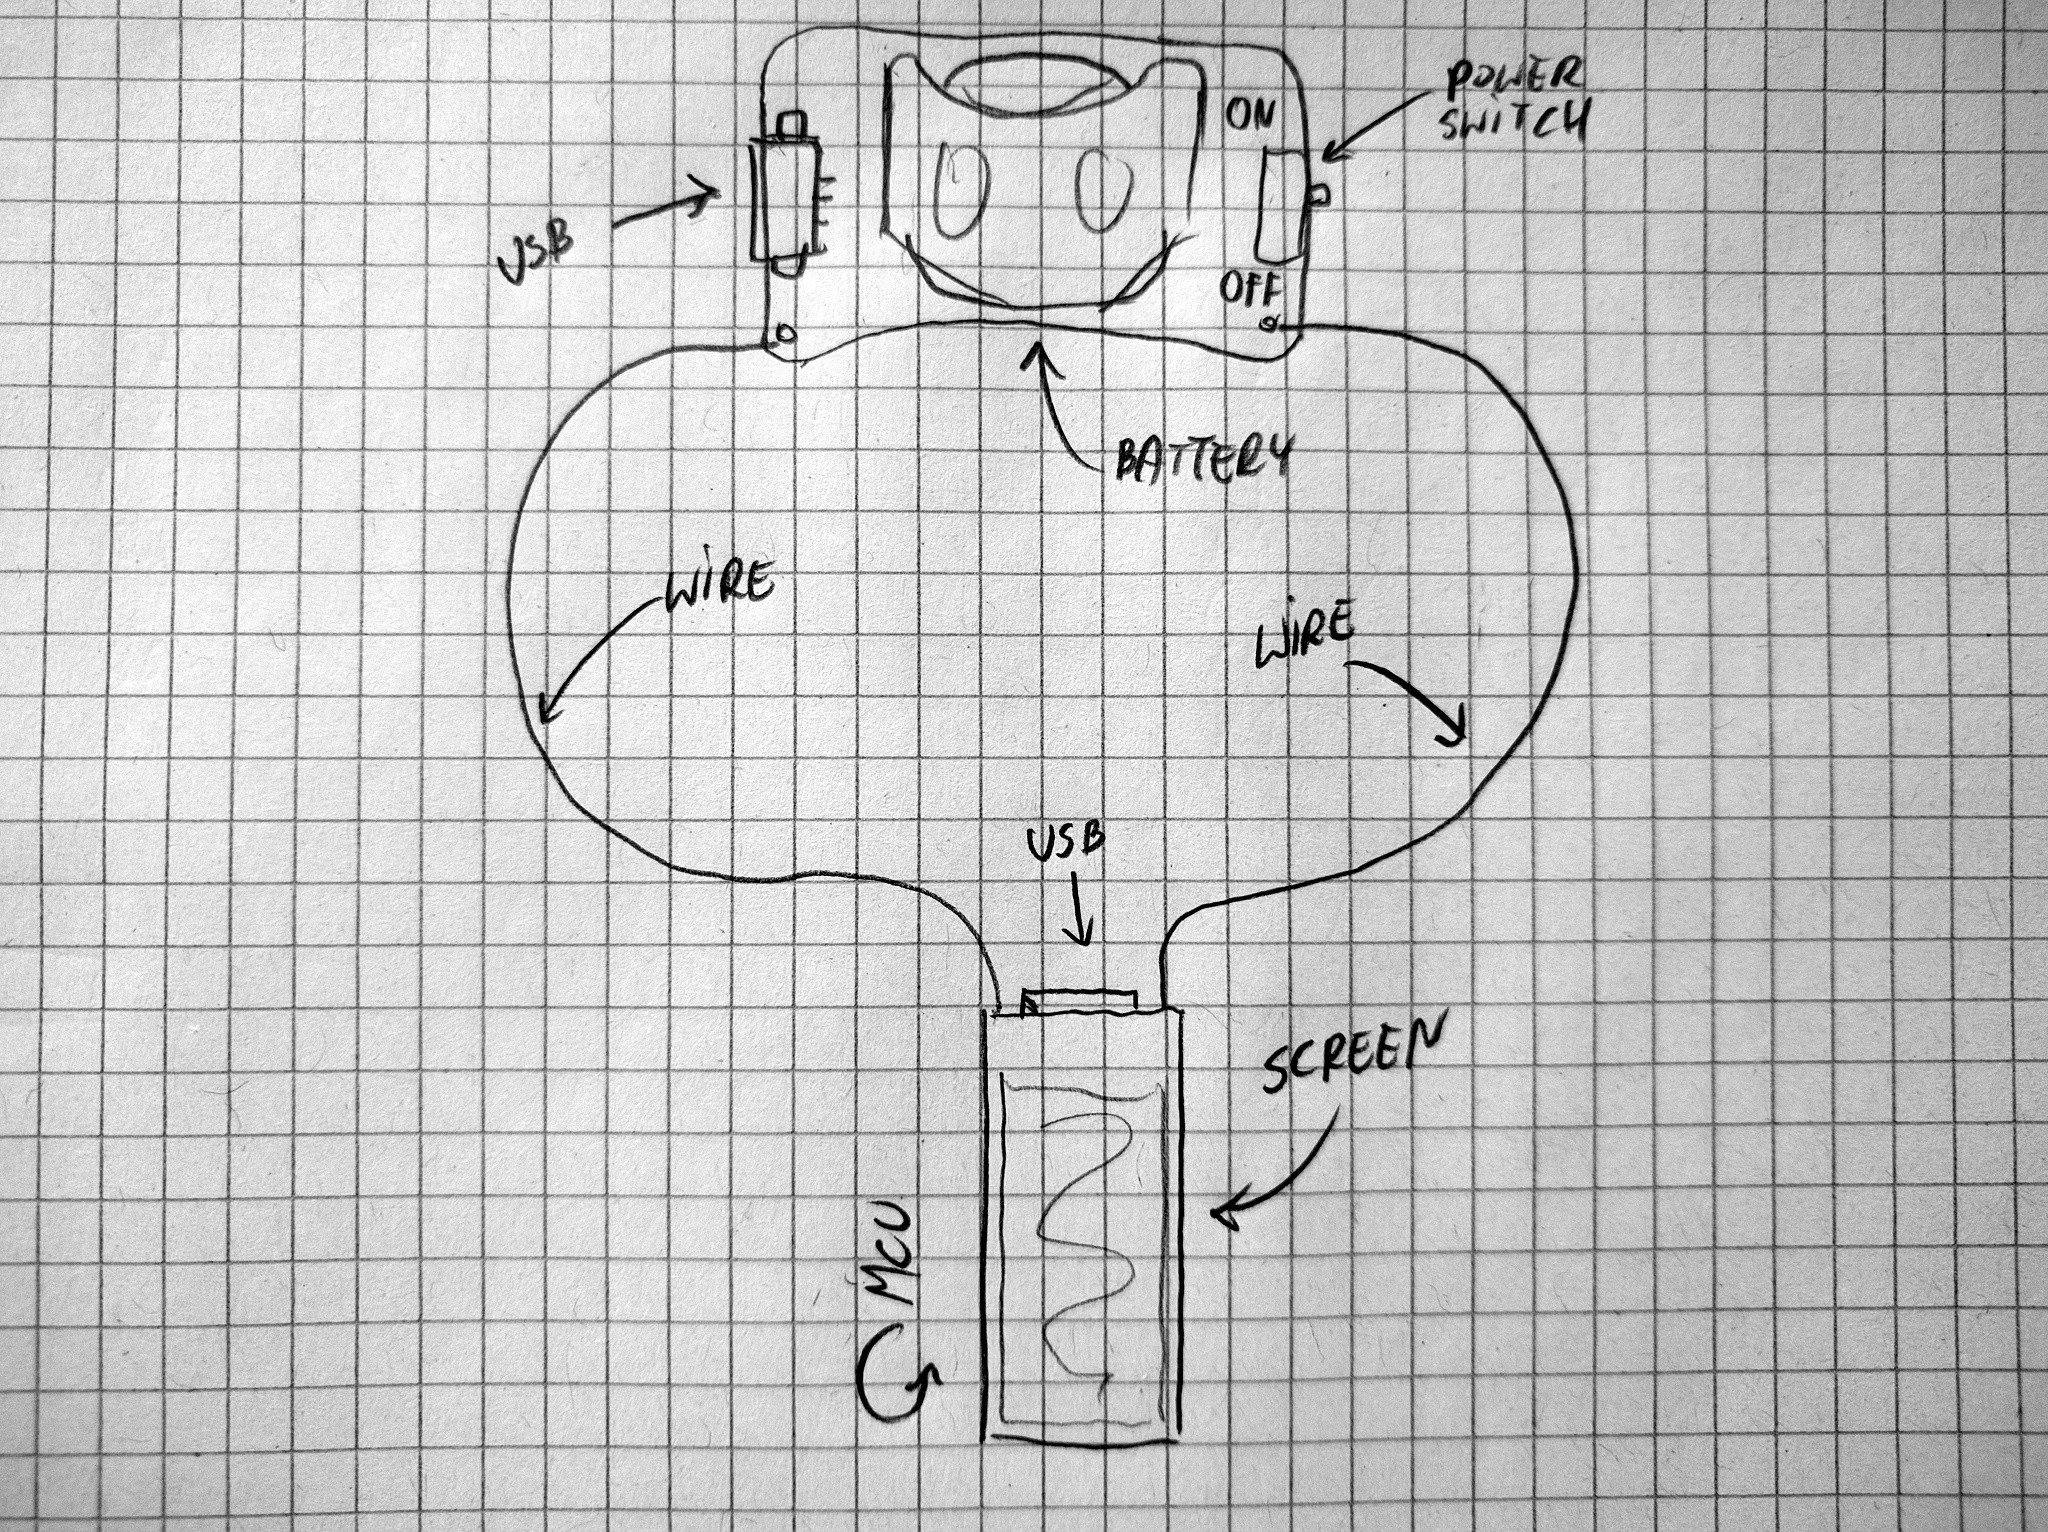 POWER
SWITCH
ON
USB
OFF
BATTERY
WIRE
WIRE
USB
SCREEN
MCU